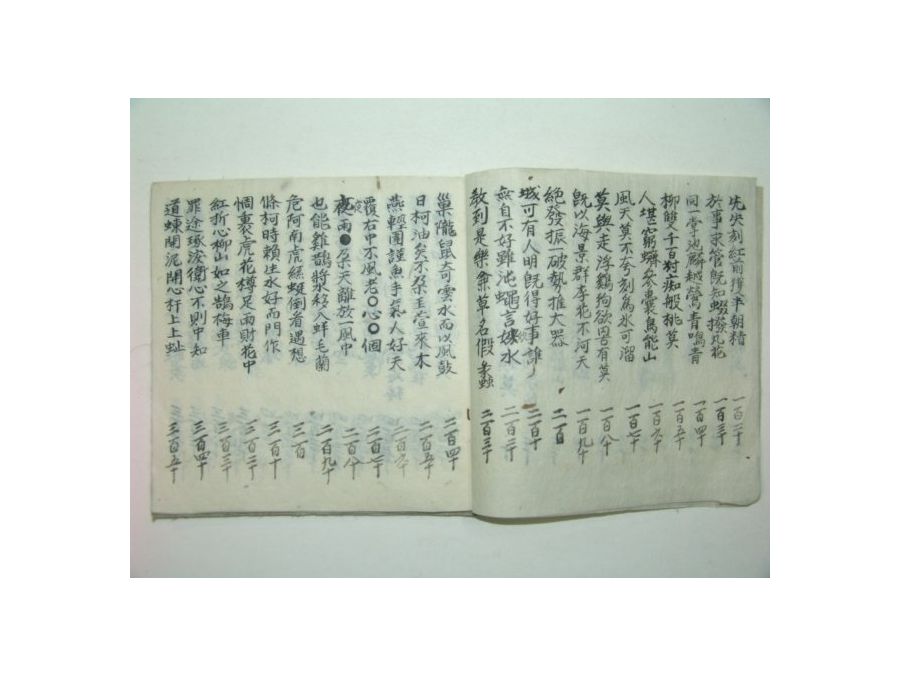 先失刻紅前 朝精 一百二十
於事求管旣知蝃撥丸花 一百三十
同一掌池麟越鶯青鳴青 一百四十
柳雙千百対痴般桃莫 一百五十
人堪窮蟒參囊烏能山 一百六十
風天莫不夸刻為水可溜 一百七十
莫與走浮鷄狗欲思有莫 一百八十
旣以海景群李犯不河天 一百九十
絶發振一破勢推大器 二百
城可有人明旣得好事誰 二百十
無自不好雖沌蠅言嫌水 二百二十
教到是樂禽草名假 二百三十
巢隴鼠大可雲水而以風鼓 二百四十
日柯油矣不朶玉萱來木 二百五十
燕輕團謹魚手氣人好天 二百六十
覆右中不風老○心○個 二百七十
夜雨●朶天離放一風中 二百八十
也能雞鵲將氷移入蚌毛蘭 二百九十
危阿南虎繇蜓倒者遇想 三百
條柯時賴坐水好而門作 三百十
惆裏虎花樽足雨財花中 三百二十
紅折心柳山如之鵠梅車 三百三十
罪途琢浚衛心不則中知 三百四十
道蝀開泥閉心杆上上蚣 三百五十